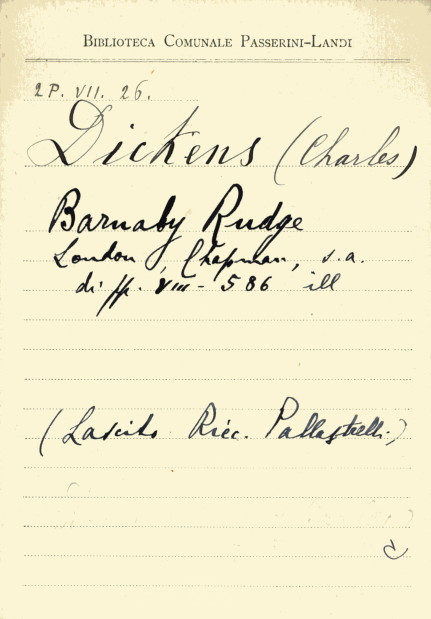 BIBLIOTECA COMUNALE PASSERINI-LANDI
2 P. VII. 26.
Dickens (Charles)
Barnaby Rudge
London, Chapman, s.a.
di pp. VIII - 586 ill
(Lascito Ricc. Pallastrelli.)